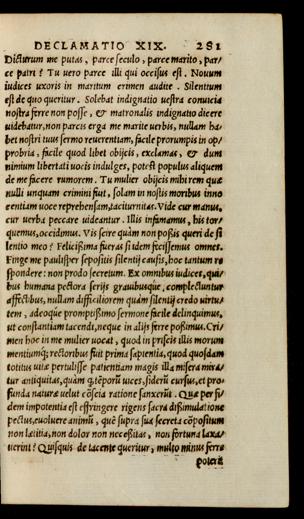 DECLAMATIO XIX. 281
Dicturum me putas, parce seculo, parce marito, par/
ce patri? Tu vero parce illi qui occisus est. Nouum
iudices uxoris in maritum crimen audite. Silentium
est de quo queritur. Solebat indignatio vestra conuicia
nostra ferre non posse, & matronalis indignatio dicere
uidebatur, non parcis erga me marite verbis, nullam ha/
bet nostri tuus sermo reuerentiam, facile prorumpis in op/
probria, facile quod libet obijcis, exclamas, & dum
nimium libertati uocis indulges, potest populus aliquem
de me facere rumorem. Tu mulier obijcis mihi rem quæ
nulli unquam crimini fuit, solam in nostis moribus inno
centiam uoce reprehensam, taciturnitas. Vide cur manus,
cur verba peccare uideantur. Illis infamamus, his tor/
quemus, occidimus. Vis scire quàm non possis queri de si
lentio meo? Felicissima fueras si idem fecissemus omnes.
Finge me paulisper sepositis silentij causis, hoc tantum re
spondere: non prodo secretum. Ex omnibus iudices, qui/
bus humana pectora serijs grauibusque, complectuntur
affectibus, nullam difficiliorem quàm silentij credo uirtu/
tem, adeoque promptissimo sermone facile delinquimus,
ut constantiam tacendi, neque in alijs ferre possimus. Cri/
men hoc in me mulier uocat, quod in priscis illis morum
mentiumq; rectoribus fuit prima sapientia, quod quosdam
totitus vitæ pertulisse patientiam magis illa misera mira/
tur antiquitas, quàm q; tẽporũ uices, siderũ cursus, et pro/
funda naturæ velut cõscia ratione sanxerũt. Quæ per fi/
dem impotentia est estringere rigens sacra dissimulatione
pectus, euoluere animũ, quẽ supra sua secreta cõpositum
non lætitia, non dolor non necessitas, non fortuna laxa/
uerint? Quisquis de tacente queritur, multo minus ferre
poterit